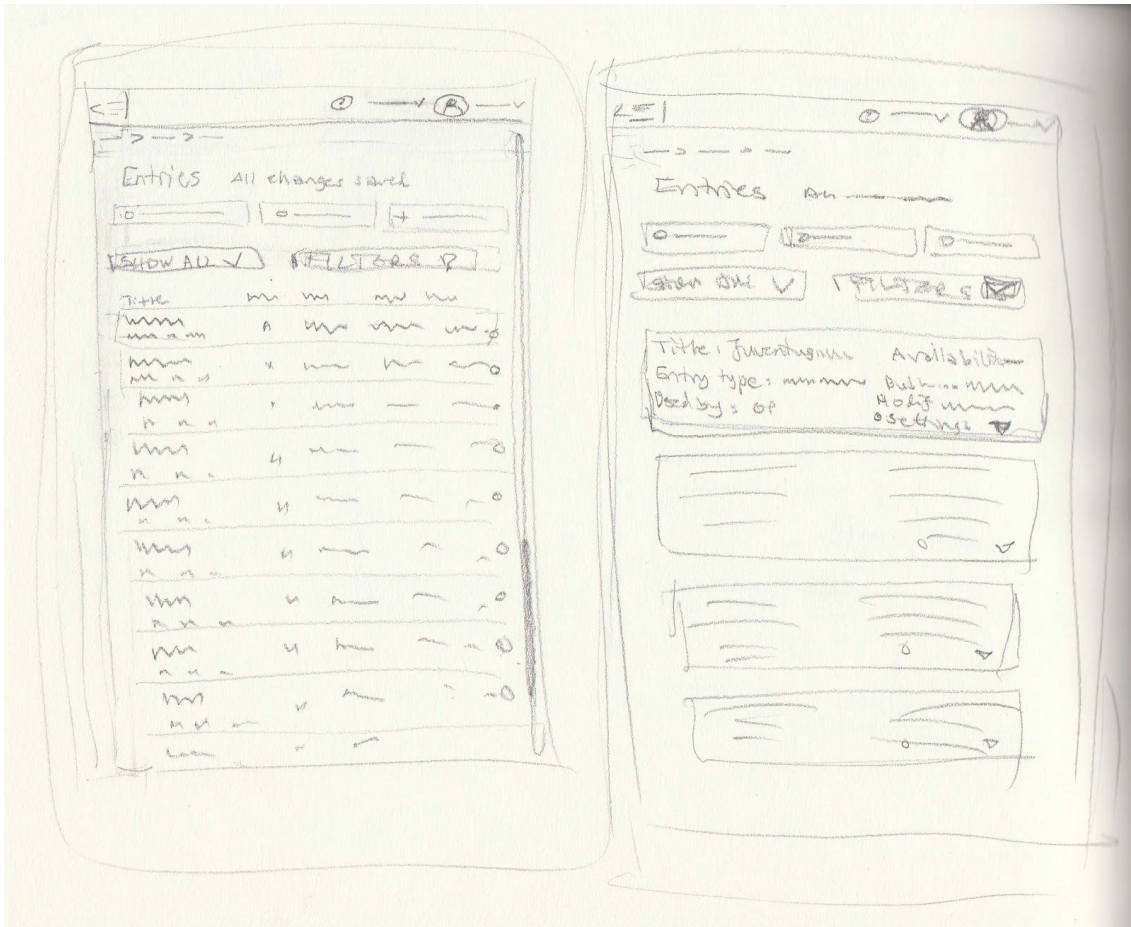 Entries All changes saved
SHOW ALL
FILTERS
Title
Entries All
Show All
FILTERS
Title: Availability
Entry type:
Used by: OP
Modif
Settings